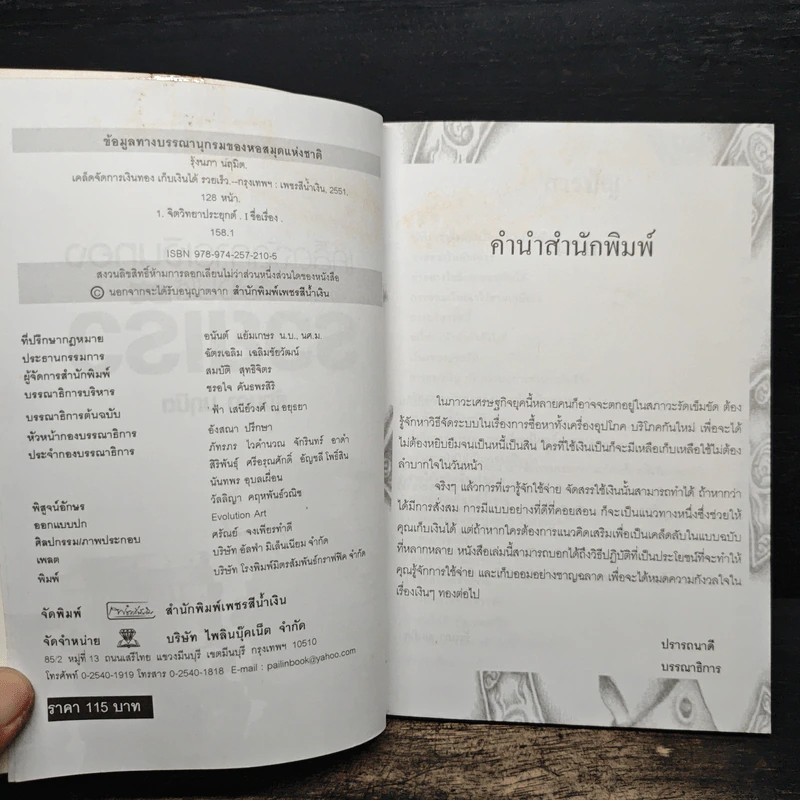 ข้อมูลทางบรรณานุกรมของหอสมุดแห่งชาติ
รุ้งนภา นฤมิต.
เคล็ดจัดการเงินทอง เก็บเงินได้ รวยเร็ว.--กรุงเทพฯ : เพชรสีน้ำเงิน, 2551.
128 หน้า.
1. จิตวิทยาประยุกต์ . I ชื่อเรื่อง .
158.1
ISBN 978-974-257-210-5
สงวนลิขสิทธิ์ห้ามการลอกเลียนไม่ว่าส่วนหนึ่งส่วนใดของหนังสือ
© นอกจากจะได้รับอนุญาตจาก สำนักพิมพ์เพชรสีน้ำเงิน
ที่ปรึกษากฎหมาย อนันต์ แย้มเกษร น.บ., นศ.ม.
ประธานกรรมการ ฉัตรเฉลิม เฉลิมชัยวัฒน์
ผู้จัดการสำนักพิมพ์ สมบัติ สุทธิจิตร
บรรณาธิการบริหาร ชรอใจ คันธพรสิริ
บรรณาธิการต้นฉบับ ฟ้า เสนีย์วงศ์ ณ อยุธยา
หัวหน้ากองบรรณาธิการ อังสณา ปรึกษา
ประจำกองบรรณาธิการ ภัทรภร ไวคำนวณ จักรินทร์ อาดำ
สิริพันธุ์ ศรีอรุณศักดิ์ อัญชลี โพธิ์สิน
นันทพร อุบลเผื่อน
พิสูจน์อักษร วัลลิญา คฤหพันธ์วณิช
ออกแบบปก Evolution Art
ศิลปกรรม/ภาพประกอบ ศรัณย์ จงเพียรทำดี
เพลต บริษัท อัลฟ่า มิเล็นเนียม จำกัด
พิมพ์ บริษัท โรงพิมพ์มิตรสัมพันธ์กราฟฟิค จำกัด
จัดพิมพ์ สำนักพิมพ์เพชรสีน้ำเงิน
จัดจำหน่าย บริษัท ไพลินบุ๊คเน็ต จำกัด
85/2 หมู่ที่ 13 ถนนเสรีไทย แขวงมีนบุรี เขตมีนบุรี กรุงเทพฯ 10510
โทรศัพท์ 0-2540-1919 โทรสาร 0-2540-1818 E-mail : pailinbook@yahoo.com
ราคา 115 บาท
คำนำสำนักพิมพ์
ในภาวะเศรษฐกิจยุคนี้หลายคนก็อาจจะตกอยู่ในสภาวะรัดเข็มขัด ต้อง
รู้จักหาวิธีจัดระบบในเรื่องการซื้อหาทั้งเครื่องอุปโภค บริโภคกันใหม่ เพื่อจะได้
ไม่ต้องหยิบยืมจนเป็นหนี้เป็นสิน ใครที่ใช้เงินเป็นก็จะมีเหลือเก็บเหลือใช้ไม่ต้อง
ลำบากใจในวันหน้า
จริงๆ แล้วการที่เรารู้จักใช้จ่าย จัดสรรใช้เงินนั้นสามารถทำได้ ถ้าหากว่า
ได้มีการสั่งสม การมีแบบอย่างที่ดีที่คอยสอน ก็จะเป็นแนวทางหนึ่งซึ่งช่วยให้
คุณเก็บเงินได้ แต่ถ้าหากใครต้องการแนวคิดเสริมเพื่อเป็นเคล็ดลับในแบบฉบับ
ที่หลากหลาย หนังสือเล่มนี้สามารถบอกได้ถึงวิธีปฏิบัติที่เป็นประโยชน์ที่จะทำให้
คุณรู้จักการใช้จ่าย และเก็บออมอย่างชาญฉลาด เพื่อจะได้หมดความกังวลใจใน
เรื่องเงินๆ ทองต่อไป
ปรารถนาดี
บรรณาธิการ